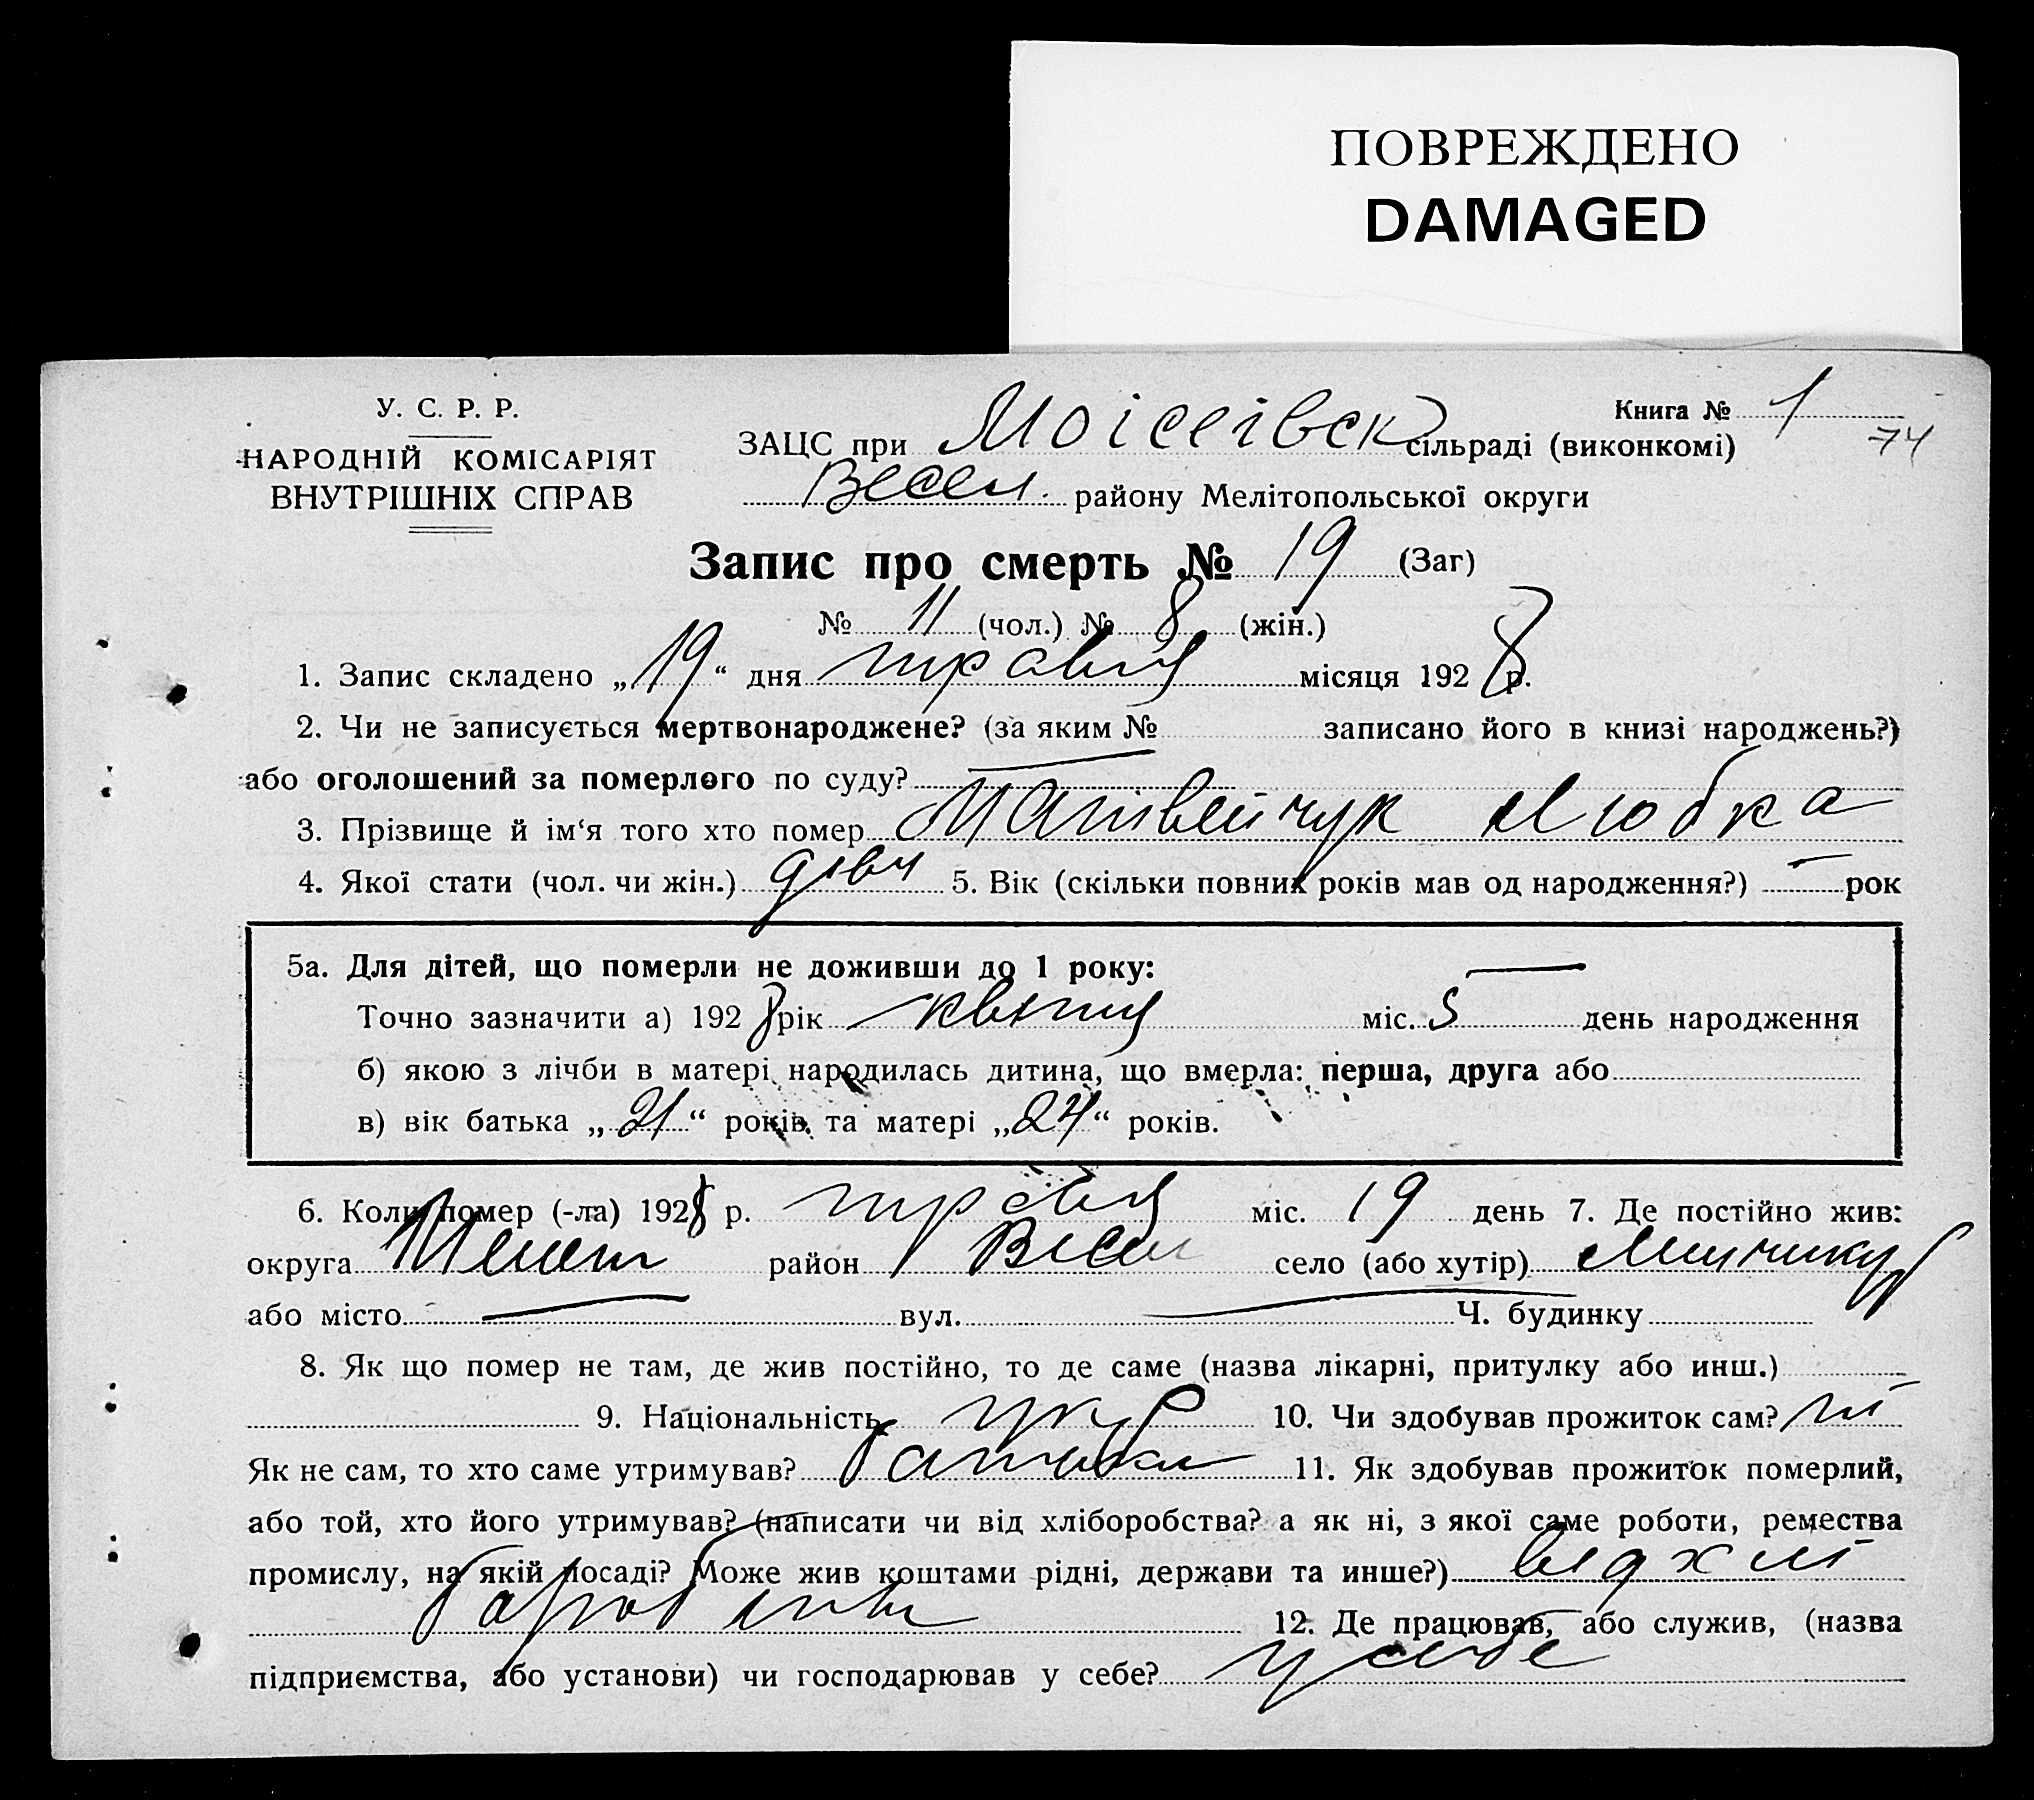 ПОВРЕЖДЕНО
DAMAGED
У. С. Р. Р.
НАРОДНІЙ КОМІСАРІЯТ
ВНУТРІШНІХ СПРАВ
Книга № 1
74
ЗАЦС при Моісеївск сільраді (виконкомі)
Весел. району Мелітопольської округи
Запис про смерть № 19 (Заг)
№ 11 (чол.) № 8 (жін.)
1. Запис складено „19“ дня травня місяця 1928 р.
2. Чи не записується мертвонароджене? (за яким № записано його в книзі народжень?)
або оголошений за померлого по суду? —
3. Прізвище й ім‘я того хто помер Матвейчук Любка
4. Якої стати (чол. чи жін.) дівч 5. Вік (скільки повних років мав од народження?) — рок
5а. Для дітей, що померли не доживши до 1 року:
Точно зазначити а) 1928 рік квітня міс. 5 день народження
б) якою з лічби в матері народилась дитина, що вмерла: перша, друга або
в) вік батька „21“ років та матері „24“ років.
6. Коли помер (-ла) 1928 р. травня міс. 19 день 7. Де постійно жив:
округа Меліт район Весел село (або хутір)
або місто — вул. — Ч. будинку
8. Як що помер не там, де жив постійно, то де саме (назва лікарні, притулку або инш.)
9. Національність укр 10. Чи здобував прожиток сам? ні
Як не сам, то хто саме утримував? батьки 11. Як здобував прожиток померлий,
або той, хто його утримував? (написати чи від хліборобства? а як ні, з якої саме роботи, ремества
промислу, на якій посаді? Може жив коштами рідні, держави та инше?) від хлі
боробства 12. Де працював, або служив, (назва
підприємства, або установи) чи господарював у себе? у себе